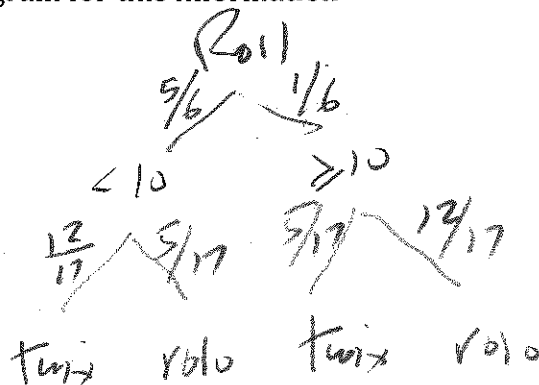 Roll
5/6 1/6
< 10 ≥10
12/17 5/17 5/17 12/17
twix rolo twix rolo